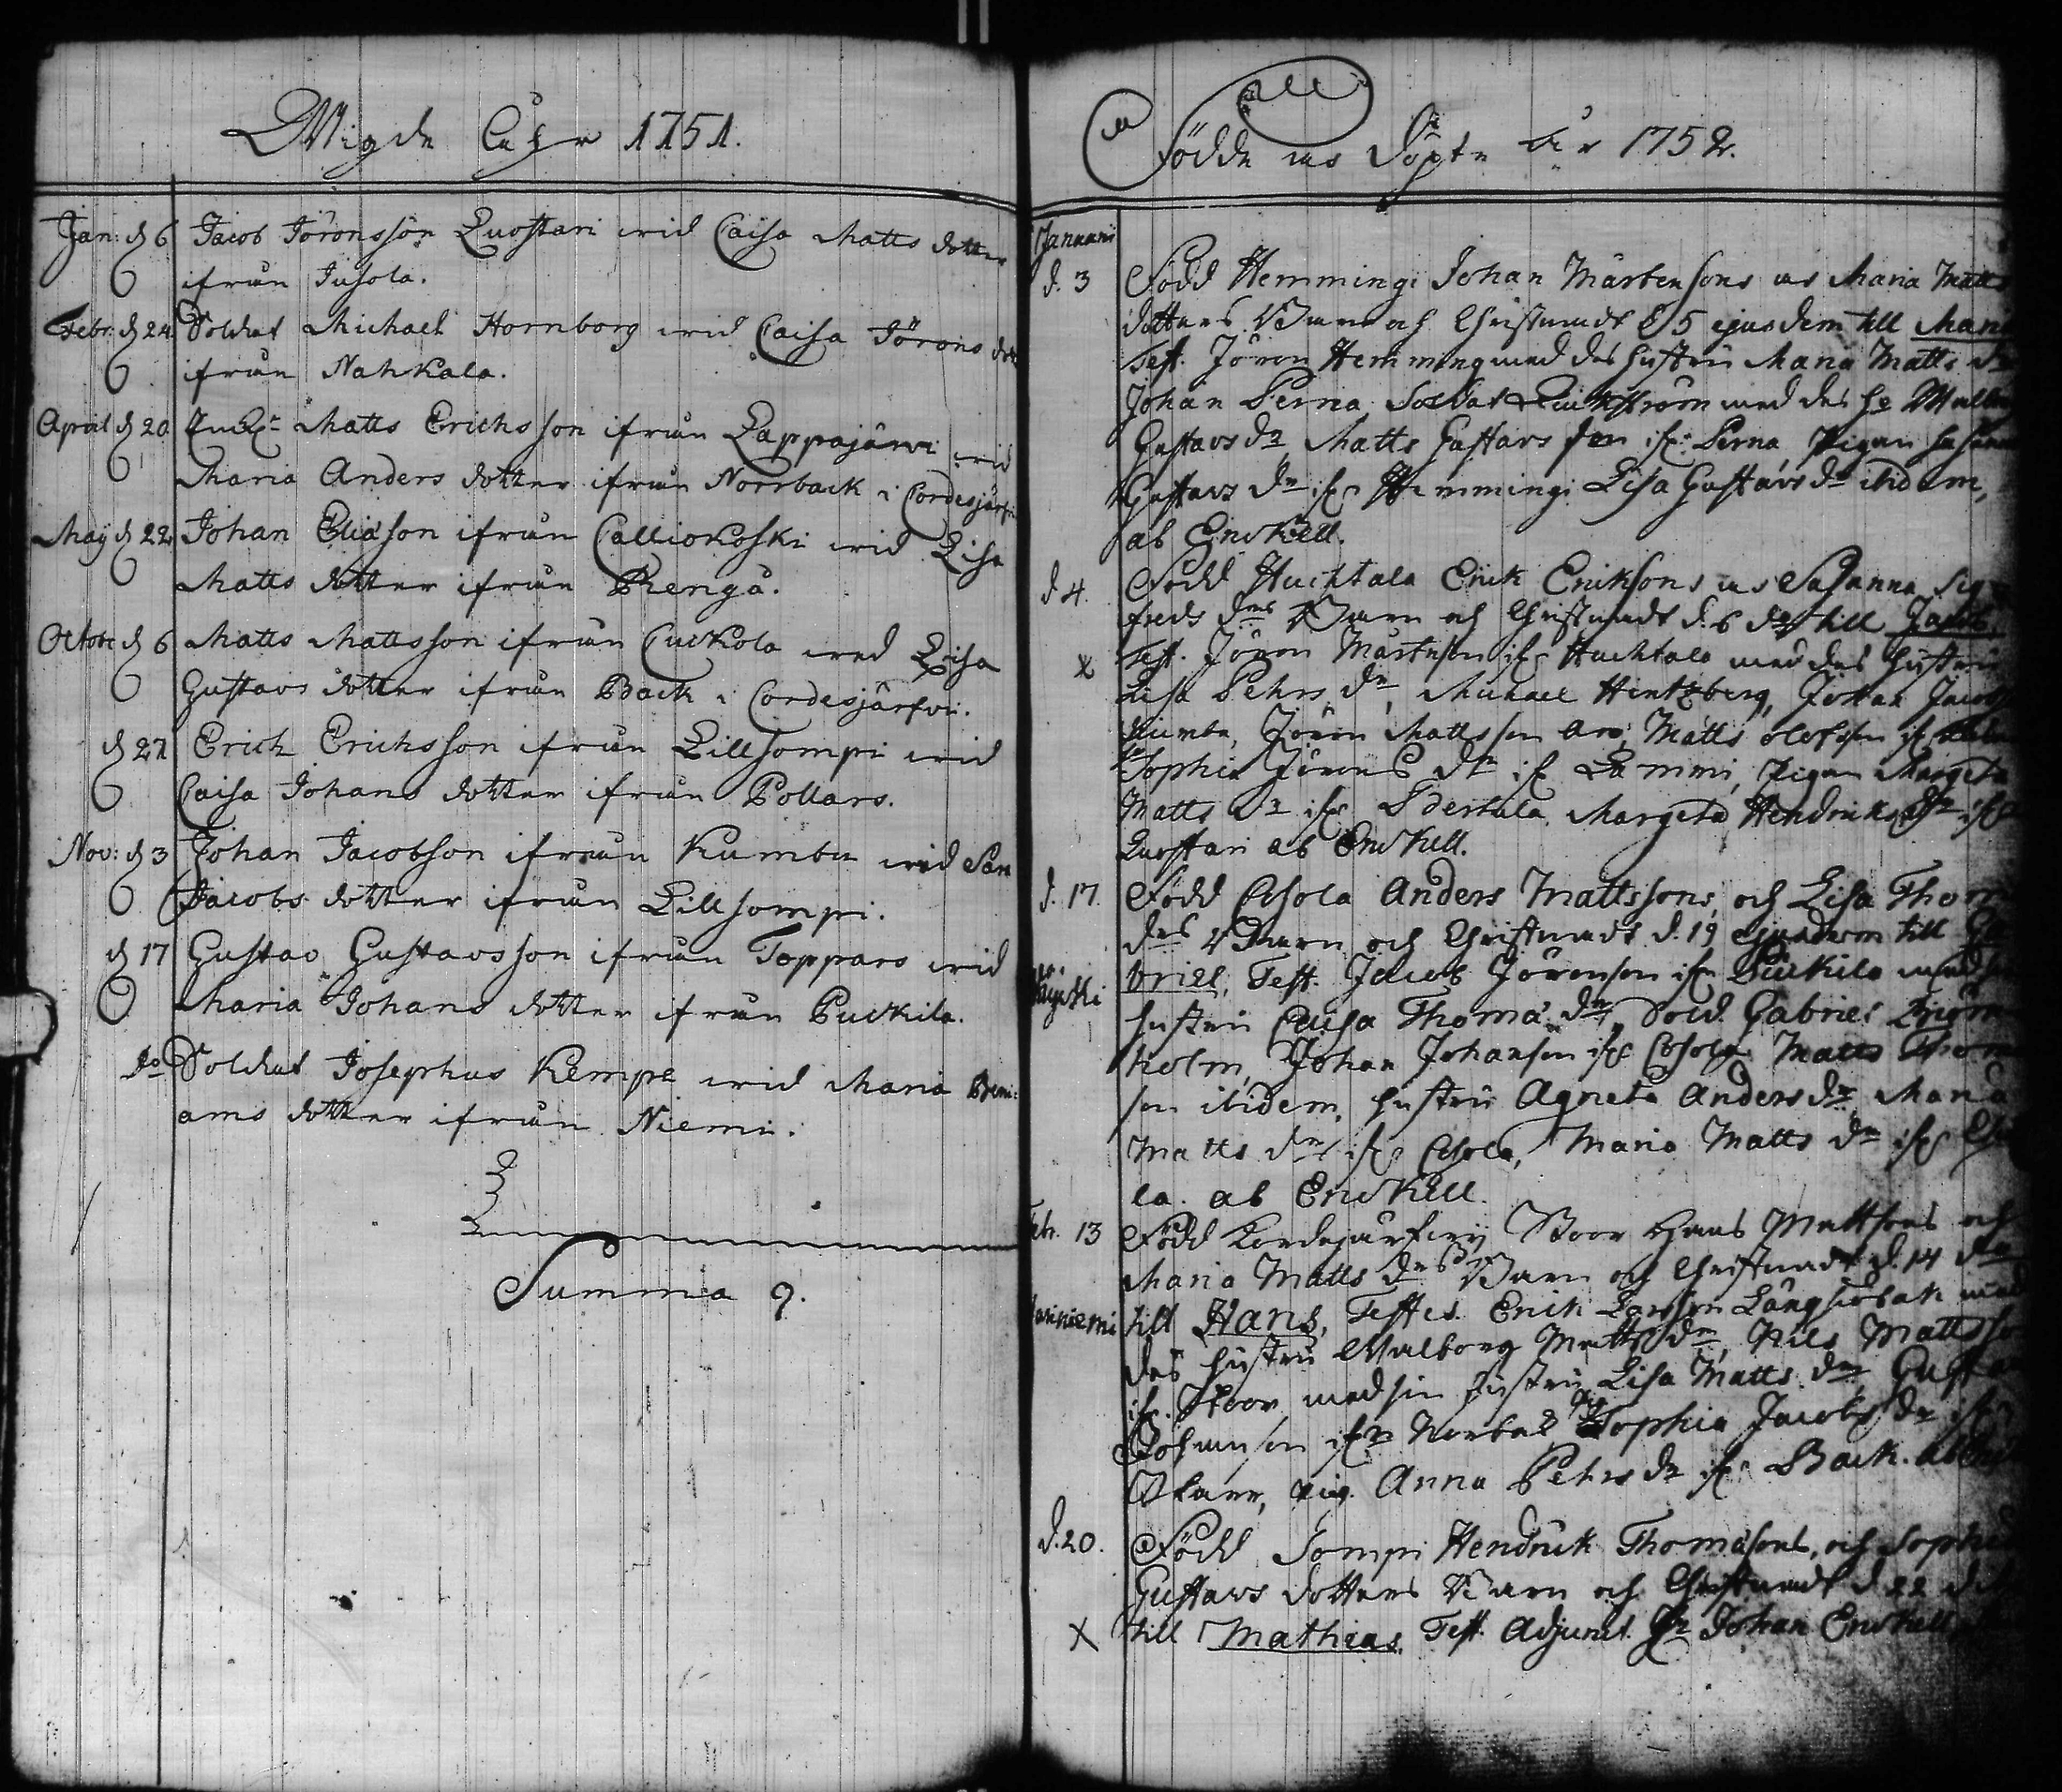 Wigde Åhr 1751.
Jan: d 6 Jacob Jöronsson Luostari wid Caisa Matts dotter
ifrån Jusola.
Febr: d 24 Soldat Michael Hornborg wid Caisa Jörons
ifrån Nahkala.
April d 20 Matts Erichsson ifrån Lappajärwi wid
Maria Anders dotter ifrån Norrback i Cordesjärfwi
May d 22 Johan Eliason ifrån Calliokoski wid Lisa
Matts dotter ifrån Rengå.
Octobr d 6 Matts Mattsson ifrån Cuckola wid Lisa
Gustavs dotter ifrån Back i Cordesjärfwi.
d 27 Erich Erichsson ifrån Lillsompi wid
Caisa Johans dotter ifrån Pollars.
Nov: d 3 Johan Jacobson ifrån Kumbu wid
Jacobs dotter ifrån Lillsompi.
d 17 Gustav Gustavsson ifrån Toppars wid
Maria Johans dotter ifrån Puckila.
do Soldat Josephus Kempe wid Maria Beni:
ams dotter ifrån Niemi.
Summa 9.
Födde och Döpte År 1752.
Januarii
d. 3 Född Hemmingi Johan Mårtensons och Maria Matts
dotters Barn och Christnadt d 5 ejusdem till Maria
Test. Jöron Hemming med des hustru Maria Matts dr
Johan Perna, Soldat med des h:
Gustavs dr Matts Gustavs son ifr: Perna, Pigan
Gustavs dr ifr Hemmingi Lisa Gustavs dr ibidem,
ab Enckell.
d. 4. Född Huchtala Erik Eriksons och Susanna Sig
freds drs Barn och Christnadt d. 6 do till Jacob,
x Test. Jöron Mårtenson ifr Huchtala med des hustru
Lisa Pehrs dr, Michael Hintzberg, Johan Jacobs
Kumbu, Jöron Mattsson Aro, Matts Olofson if
Sophia Jörans dr if Lammi, Pigan Margeta
Matts dr ifr Margeta Hendriks dr ifr
Luostari ab Enckell.
d. 17. Född Assola Anders Mattssons, och Lisa Thom
drs Barn och Christnadt d. 19 ejusdem till Ga
briel, Test. Jacob Jöronson ifr Puckila med
hustru Caisa Thoma dr, Sold. Gabriel
holm, Johan Johanson ifr Assola Matts Thom
son ibidem, hustru Agneta Anders dr Maria
Matts dr ifr Assola, Maria Matts dr ifr
la. ab Enckell.
Febr. 13 Född Kordesjärfwij Boor Hans Mattsons och
Maria Matts drs Barn och Christnadt d. 14 do
till Hans, Testes. Erik Larsson Långsiöbak med
des hustru Walborg Matts dr, Nils Mattsso
ifr. Boor med sin hustru Lisa Matts dr Gusta
Johanson ifr Norbak Sophia Jacobs dr ifr
pig. Anna Pehrs dr ifr Back. ab
d. 20. Född Sompi Hendrick Thomasons, och Sophia
Gustavs dotters Barn och Christnadt d 22 d
x till Mathias. Test. Adjunct. Hr Johan Enckell